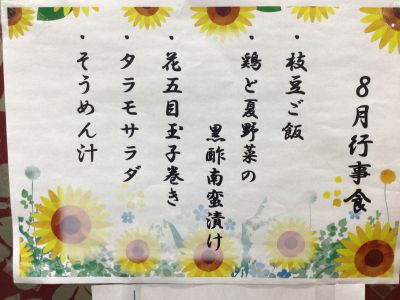 8月行事食
・枝豆ご飯
・鶏と夏野菜の
黒酢南蛮漬け
・花五目玉子巻き
・タラモサラダ
・そうめん汁